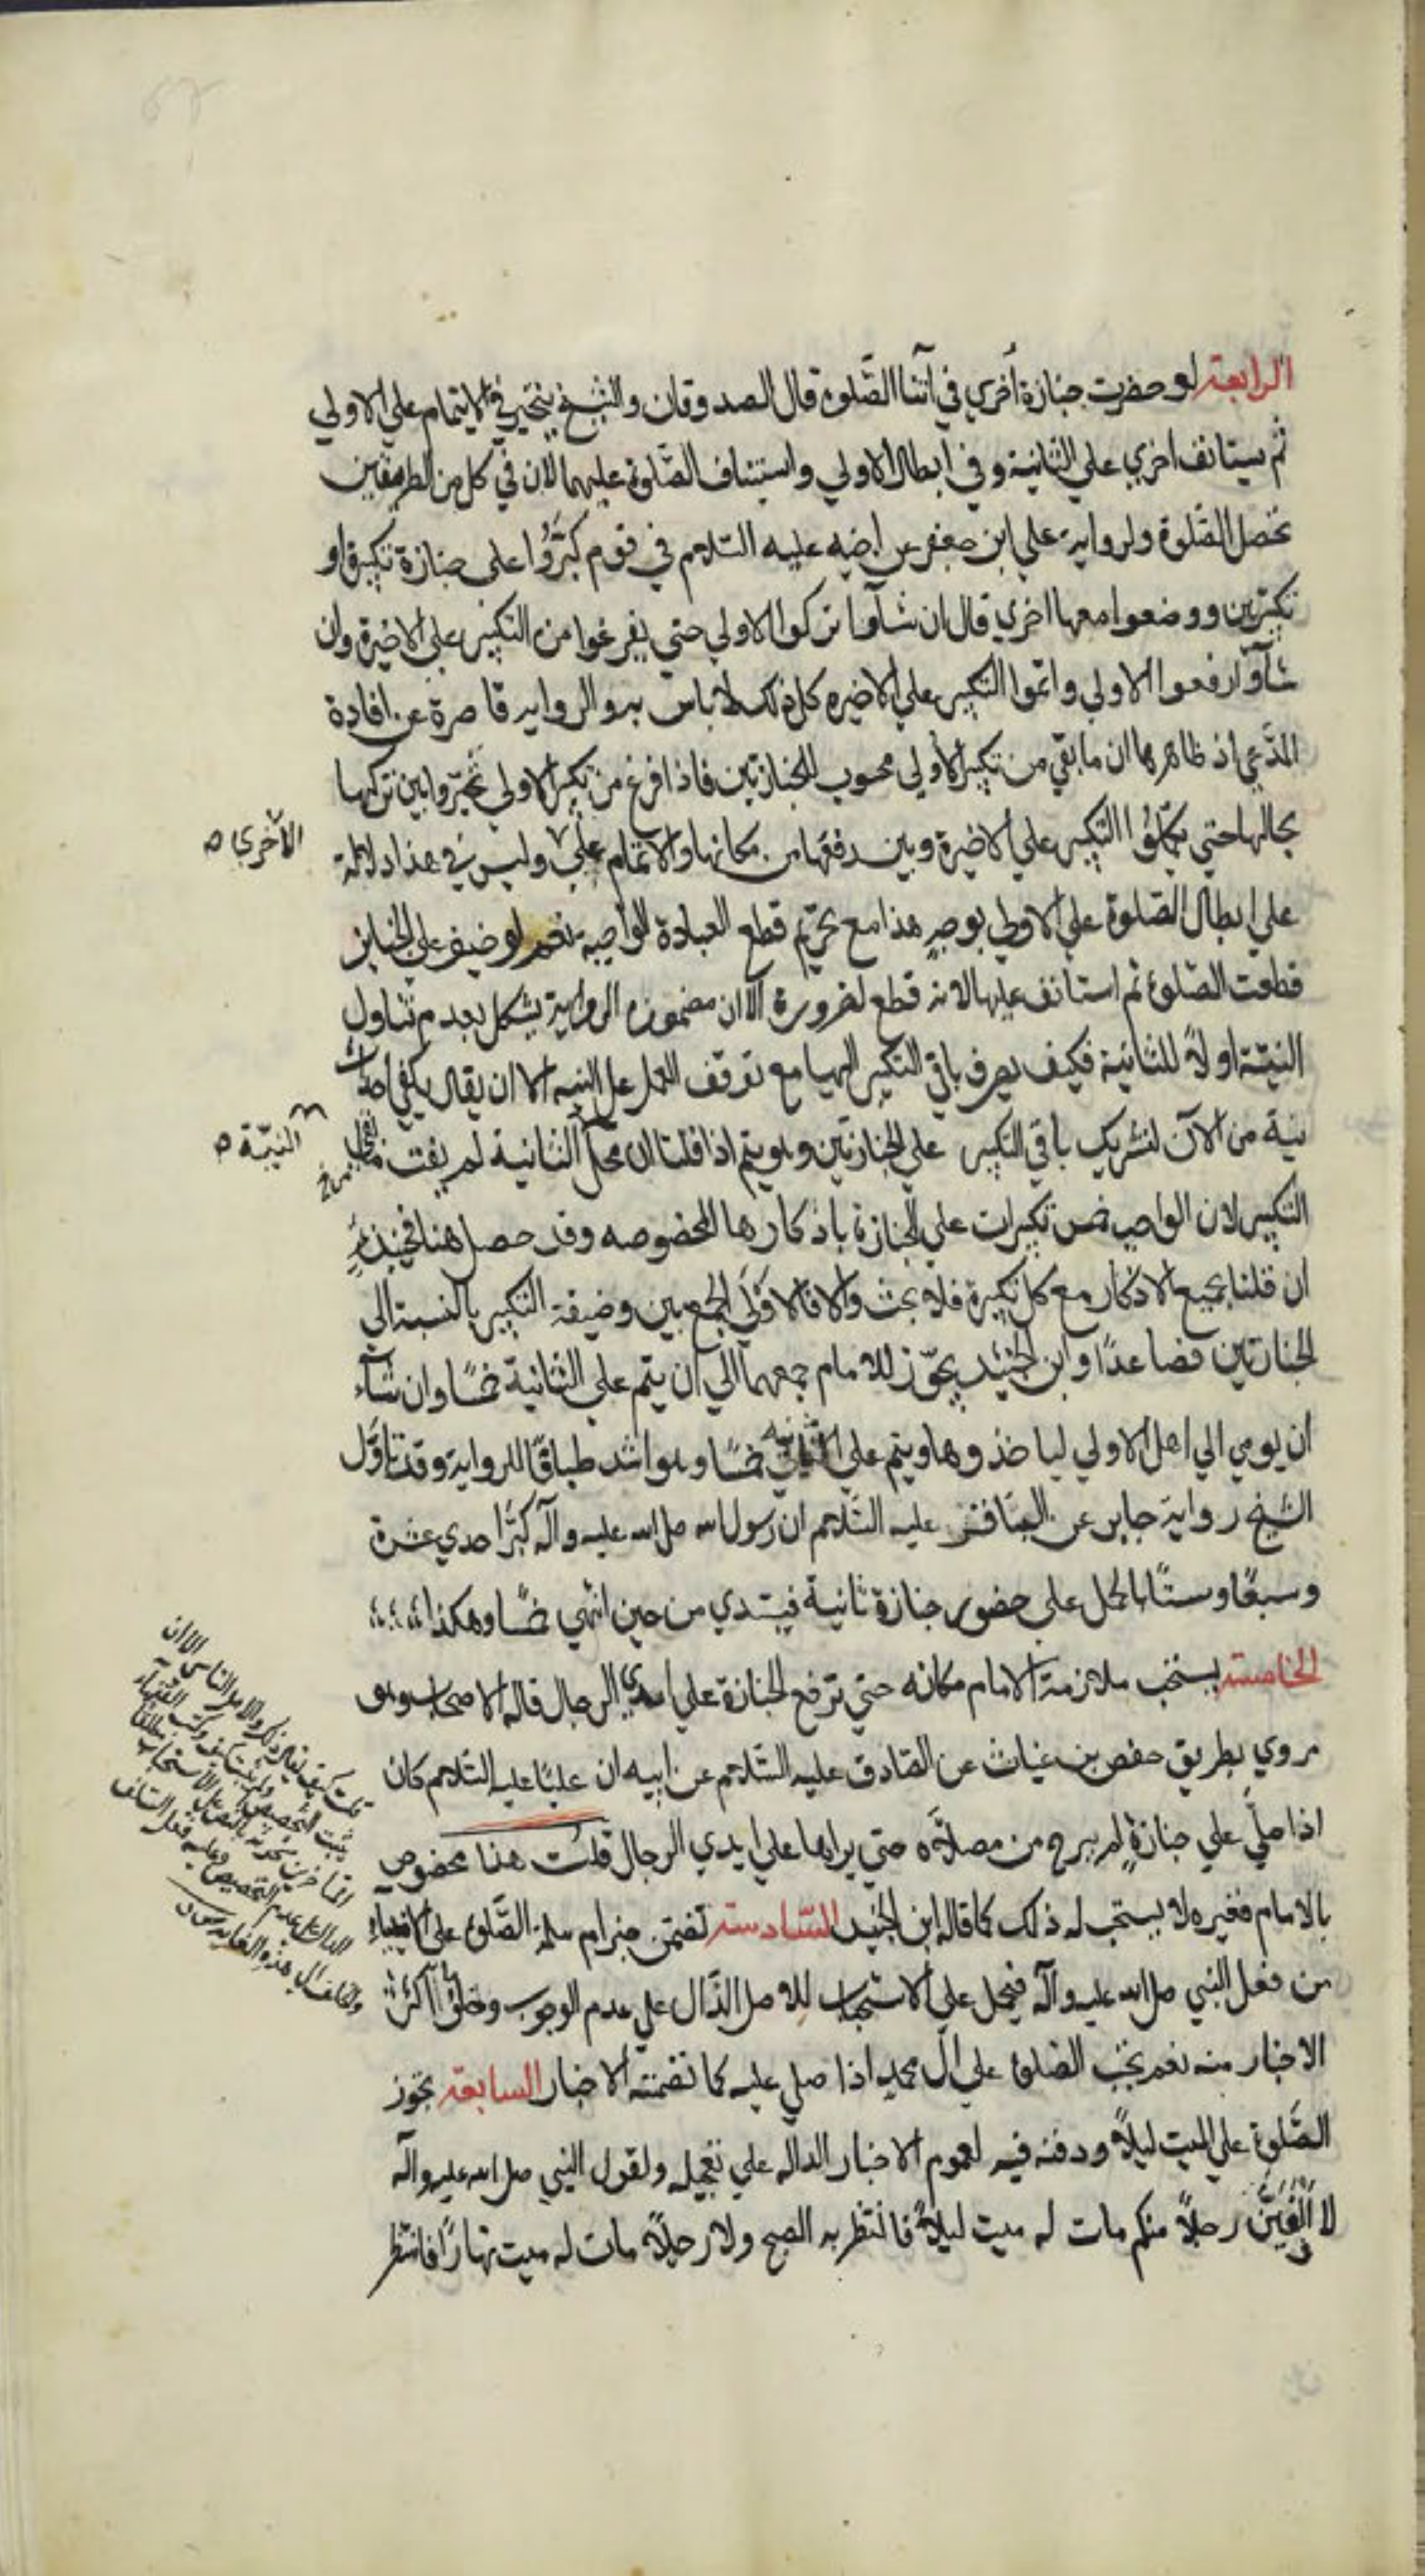 الرابعة لو حضرت جنازة أخري في أثنا الصّلوة قال الصدوقان والشيخ يتخير في الاتمام علي الاولي
ثم يستانف اخري علي الثانية وفي ابطال الاولي واستيناف الصّلوة عليهما لان في كل من الطريقين
تحصل الصّلوة ولرواية علي ابن جعفر عن اخيه عليه السّلام في قوم كبّروا علي جنازة تكبيرة او
تكبيرتين ووضعوا معها اخري قال ان شآوا تركوا الاولي حتي يفرغوا من التكبير علي الاخيرة وان
شآوا رفعوا الاولي واتموا التكبير علي الاخيره كل ذلك لا باس به والرواية قاصرة عن افادة
المدّعي اذ ظاهرها ان ما بقي من تكبير الاولي محسوب للجنازتين فاذا فرغ من تكبير الاولي تخيّروا بين تركها
بحالها حتي يكملوا التكبير علي الاخيرة وبين رفعها من مكانها والاتمام علي وليس في هذا دلالة
الاخري ص
علي ابطال الصّلوة علي الاولي بوجه هذا مع تحريم قطع العبادة الواجبه نعم لو خيف علي الجنايز
قطعت الصّلوة ثم استانف عليها لانه قطع لضرورة الا ان مضمون الرواية يشكل بعدم تناول
النيّة اولاً للثانية فكيف يصرف باقي التكبير اليها مع توقف العمل علي النيه الا ان يقال يكفي احداث
نية من الآن لتشريك باقي التكبير علي الجنازتين وهو يتم اذا قلنا ان محل الثانية لم يفت
النيّة ص
التكبير لان الواجب خمس تكبيرات علي الجنازة باذكارها المخصوصه وقد حصل هنا فحينئذٍ
ان قلنا بجميع الاذكار مع كل تكبيرة فلا بحث والا فالاوْلي الجمع بين وضيفة التكبير بالنسبة الي
الجنازتين فصاعداً وابن الجنيد يجوّز للامام جمعهما الي ان يتم علي الثانية خمسًا وان شآء
ان يومي الي اهل الاولي لياخذوها ويتم علي الثانيه خمسًا وهو اشد طباقًا للرواية وقد تاوّل
الشيخ رواية جابر عن الباقر عليه السّلام ان رسول الله صلي الله عليه وآله كبّر احدي عشرة
وسبعًا وستًا بالحمل علي حضور جنازة ثانية فيبتدي من حين انتهي خمسًا وهكذا
الخامسة يستحب ملازمة الامام مكانه حتي ترفع الجنازة علي ايدي الرجال قاله الاصحاب وهو
مروي بطريق حفص بن غياث عن الصّادق عليه السّلام عن ابيه ان عليًا عليه السّلام كان
اذا صلّي علي جنازةٍ لم يبرح من مصلّاه حتي يراها علي ايدي الرجال قلت هذا مخصوص
بالامام فغيره لا يستحب له ذلك كما قاله ابن الجنيد السّادسة تضمن خبر ام سلمة الصّلوة علي الانبياء
من فعل النبي صلي الله عليه وآله فيحمل علي الاستحباب للاصل الدّال علي عدم الوجوب وخلوّ اكثر
الاخبار منه نعم تجب الصلوة علي آل محمد اذا صلي عليه كما تضمنته الاخبار السابعة تجوز
الصّلوة علي الميت ليلاً ودفنه فيه لعموم الاخبار الداله علي تعجيله ولقول النبي صلي الله عليه وآله
لا ألفينّ رجلاً منكم مات له ميت ليلاً فانتظر به الصبح ولا رجلاً مات له ميت نهارًا فانتظر